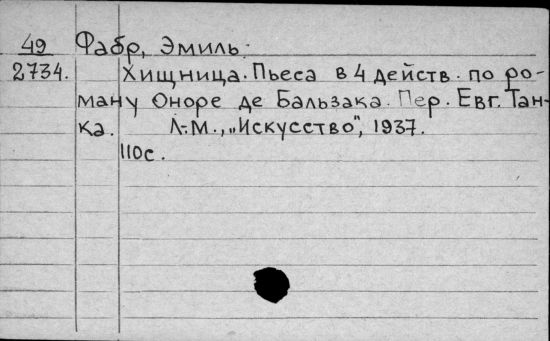 49 Фабр, Эмиль.
2734. Хищница. Пьеса в 4 действ. по ро-
ману Оноре де Бальзака. Пер. Евг. Тан-
ка. Л.-М., „Искусство", 1937.
110с.